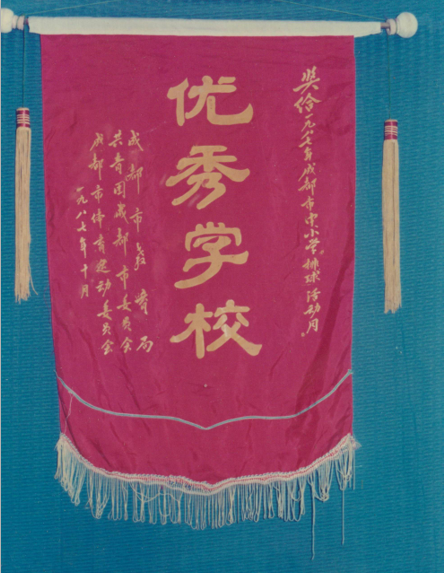 奖给一九八七年成都市中小学"排球活动月"。
优秀学校
成都市教育局
共青团成都市委员会
成都市体育运动委员会
一九八七年十月